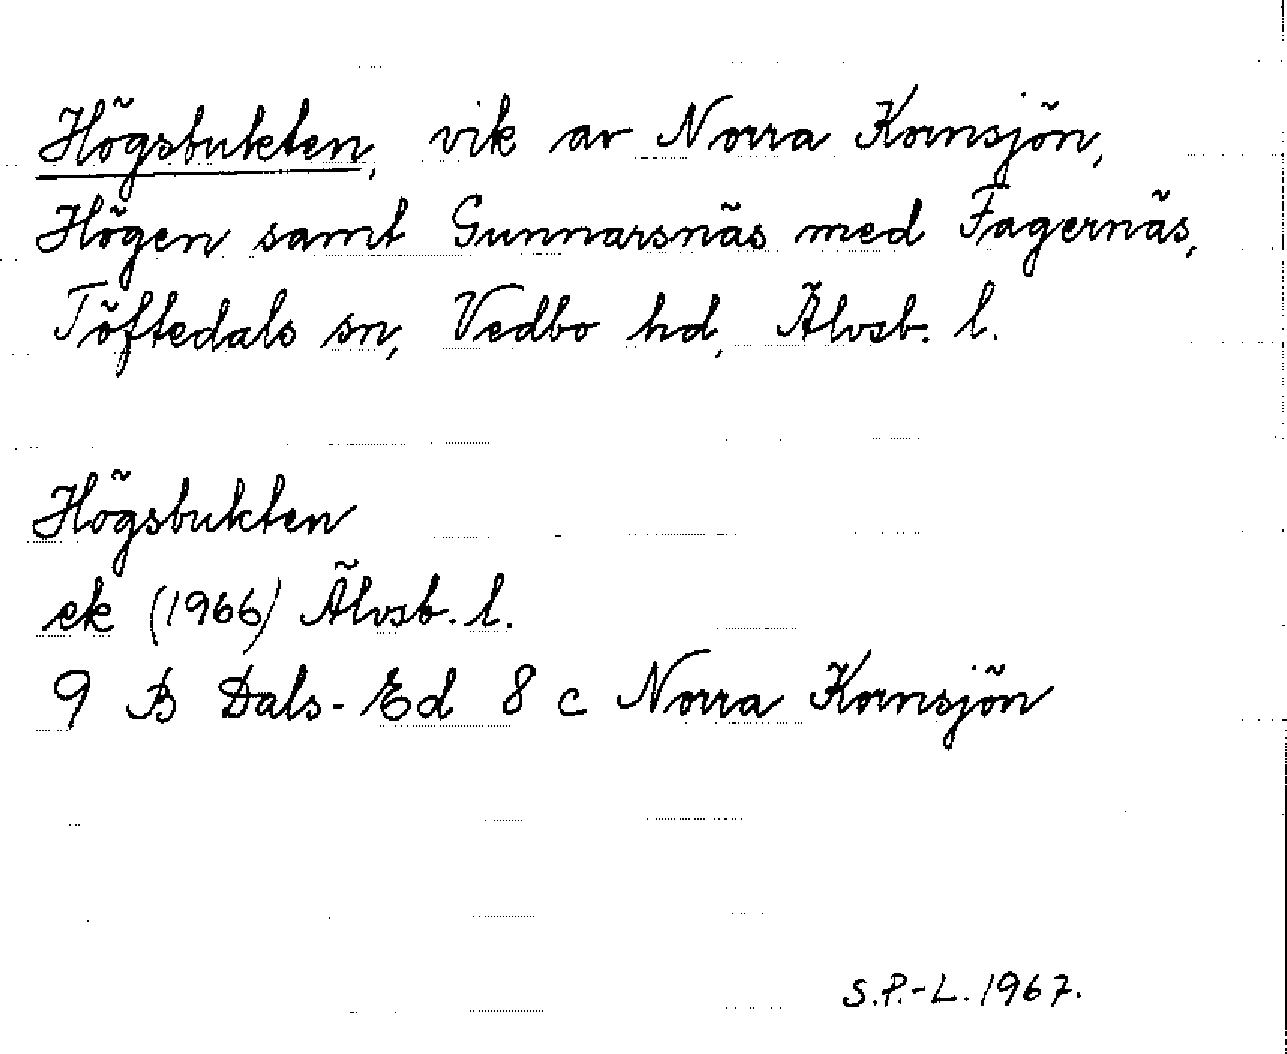 Högsbukten, vik av Norra Kornsjön,
Högen samt Gunnarsnäs med Fagernäs,
Töftedals sn, Vedbo hd, Älvsb. l.
Högsbukten
ek (1966) Älvsb. l.
9 B Dals-Ed 8 c Norra Kornsjön
S.P.-L. 1967.